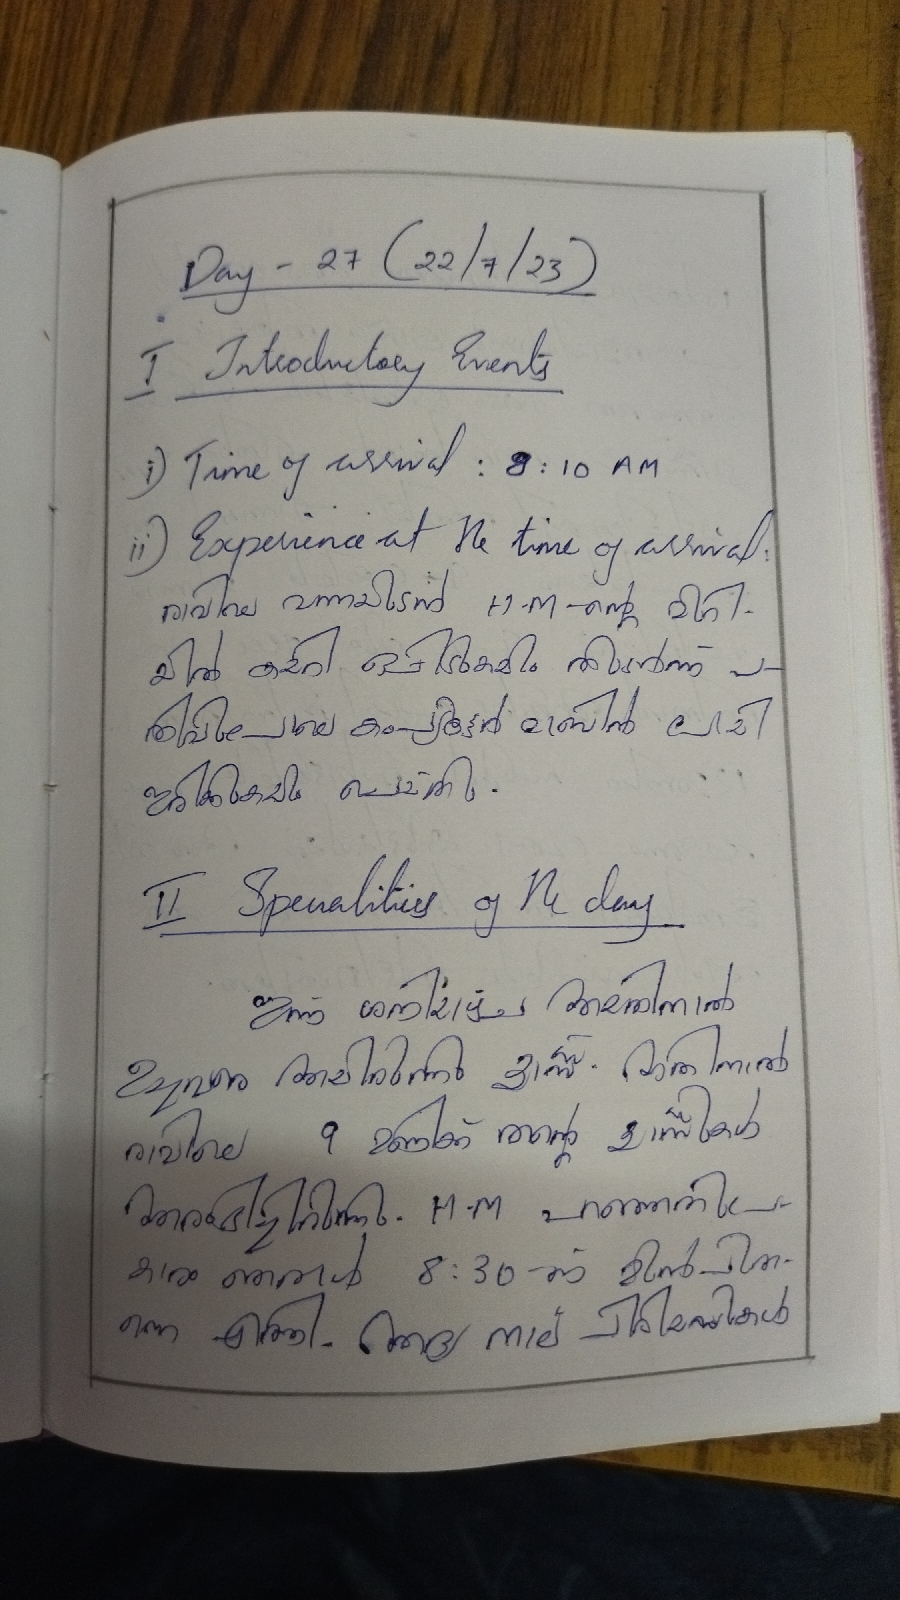 Day - 27 (22/7/23)
I Introductory Events
i) Time of arrival : 8:10 AM
ii) Experience at the time of arrival:
രാവിലെ വന്നയുടൻ H.M-ന്റെ മുറി-
യിൽ കയറി ഒപ്പിടുകയും തുടർന്ന് പ-
തിവുപോലെ കംപ്യൂട്ടർ ലാബിൽ പോയി
ഇരിക്കുകയും ചെയ്തു.
II Specialities of the day
ഇന്ന് ശനിയാഴ്ച ആയതിനാൽ
ഉച്ചവരെ ആയിരുന്നു ക്ലാസ്സ്. അതിനാൽ
രാവിലെ 9 മണിക്ക് തന്നെ ക്ലാസ്സുകൾ
ആരംഭിച്ചിരുന്നു. H.M പറഞ്ഞതുപ്ര-
കാരം ഞങ്ങൾ 8:30-ന് മുൻപുത-
ന്നെ എത്തി. ആദ്യ നാല് പീരിയഡുകൾ